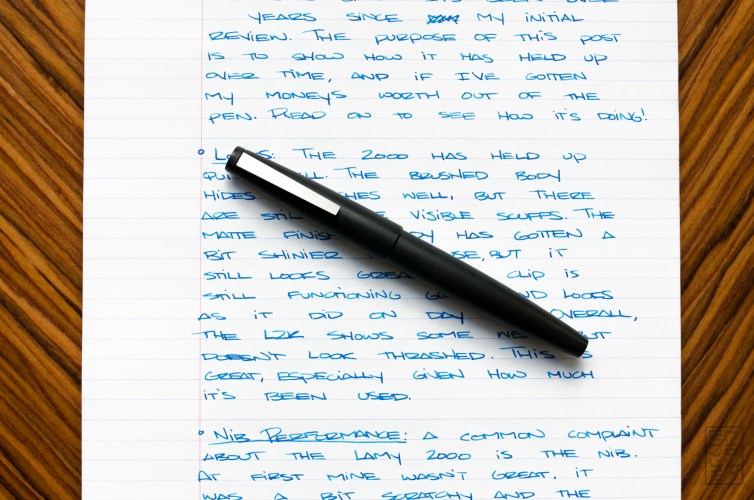 YEARS SINCE MY INITIAL
REVIEW. THE PURPOSE OF THIS POST
IS TO SHOW HOW IT HAS HELD UP
OVER TIME, AND IF I'VE GOTTEN
MY MONEYS WORTH OUT OF THE
PEN. READ ON TO SEE HOW IT'S DOING!
THE 2000 HAS HELD UP
THE BRUSHED BODY
HIDES WELL, BUT THERE
ARE VISIBLE SCUFFS. THE
MATTE HAS GOTTEN A
BIT SHINIER BUT IT
STILL LOOKS CLIP IS
STILL FUNCTIONING LOOKS
AS IT DID ON DAY OVERALL,
THE L2K SHOWS SOME
DOESN'T LOOK THRASHED. THIS
GREAT, ESPECIALLY GIVEN HOW MUCH
IT'S BEEN USED.
NIB PERFORMANCE: A COMMON COMPLAINT
ABOUT THE LAMY 2000 IS THE NIB.
AT FIRST MINE WASN'T GREAT. IT
WAS A BIT SCRATCHY AND THE